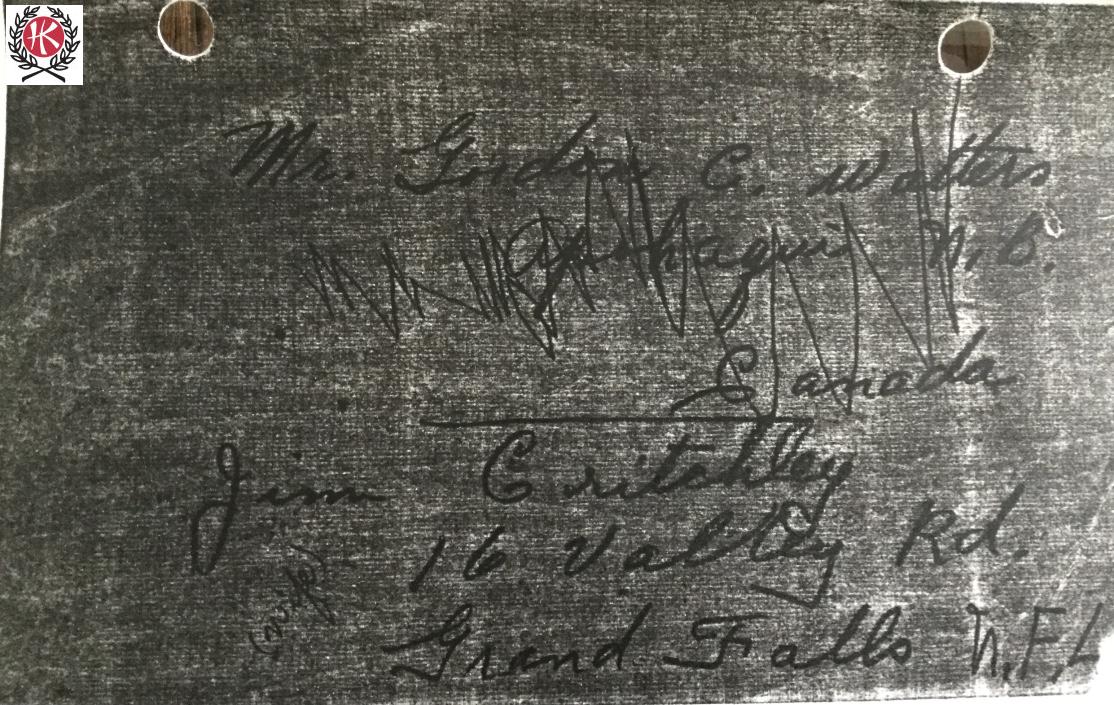 HK
Mr. Gordon C. Watters
Apohaqui N.B.
Canada
Jim Critchley
16 Valley Rd.
Grand Falls N.F.L